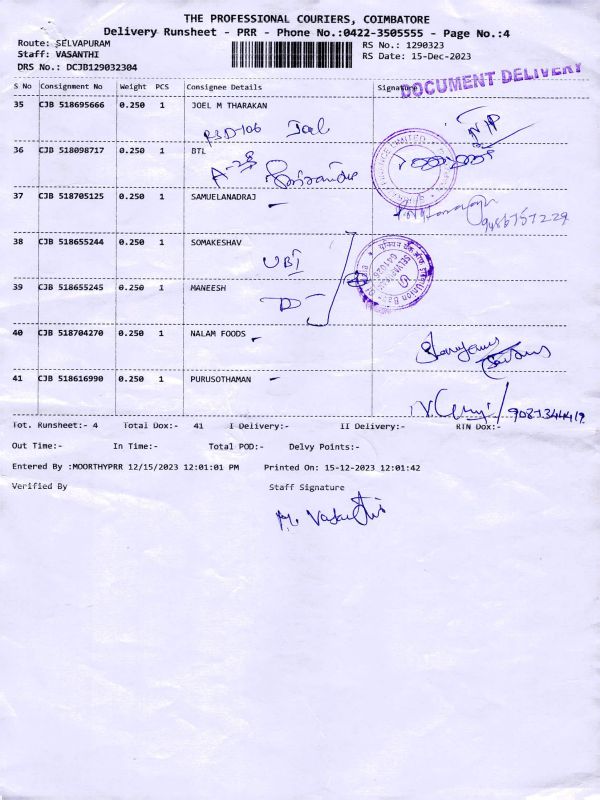 THE PROFESSIONAL COURIERS, COIMBATORE
Delivery Runsheet - PRR - Phone No.:0422-3505555 - Page No.:4
Route: SELVAPURAM
RS No.: 1290323
Staff: VASANTHI
RS Date: 15-Dec-2023
DRS No.: DCJB129032304
DOCUMENT DELIVERY
S No Consignment No Weight PCS Consignee Details Signature
35 CJB 518695666 0.250 1 JOEL M THARAKAN
Joel
36 CJB 518098717 0.250 1 BTL
37 CJB 518705125 0.250 1 SAMUELANADRAJ
9486757229
38 CJB 518655244 0.250 1 SOMAKESHAV
UBI
39 CJB 518655245 0.250 1 MANEESH
40 CJB 518704270 0.250 1 NALAM FOODS
41 CJB 518616990 0.250 1 PURUSOTHAMAN
Tot. Runsheet:- 4 Total Dox:- 41 I Delivery:- II Delivery:- RTN Dox:-
Out Time:- In Time:- Total POD:- Delvy Points:-
Entered By :MOORTHYPRR 12/15/2023 12:01:01 PM Printed On: 15-12-2023 12:01:42
Verified By Staff Signature
M. Vasanthi